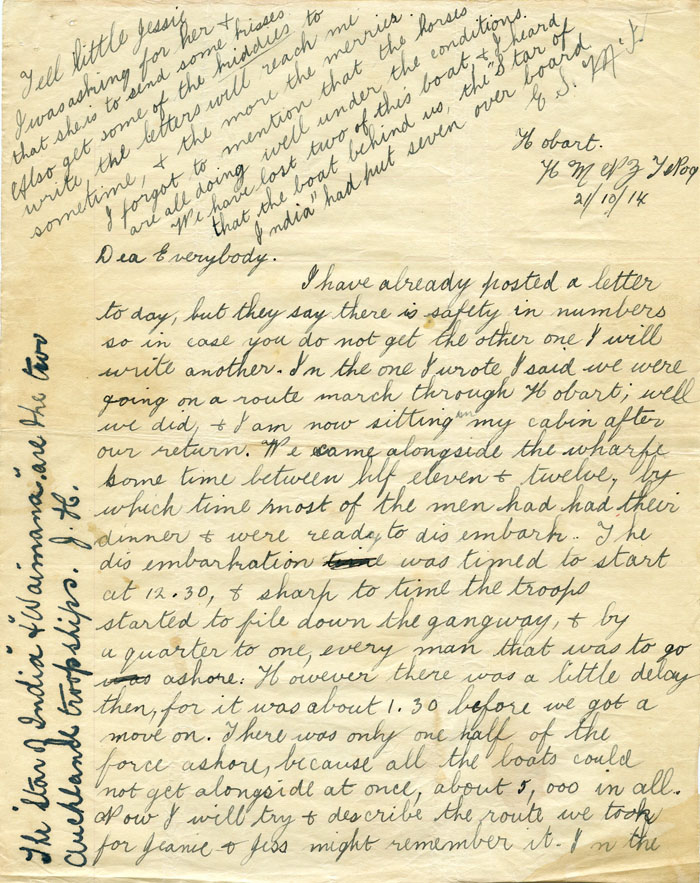 Tell little Jessie
I was asking for her &
that she is to send some kisses
Also get some of the kiddies to
write, the letters will reach me
sometime, & the more the merrier.
I forgot to mention that the horses
are all doing well under the conditions.
We have lost two of this boat, & I heard
that the boat behind us, the "Star of
India" had put seven over board
E. S. McK
Hobart.
H M N Z T
21/10/14
Dea Everybody.
I have already posted a letter
to day, but they say there is safety in numbers
so in case you do not get the other one I will
write another. In the one I wrote I said we were
going on a route march through Hobart; well
we did, & I am now sitting in my cabin after
our return. We came alongside the wharfe
some time between hlf eleven & twelve, by
which time most of the men had had their
dinner & were ready to dis embark. The
dis embarkation time was timed to start
at 12.30, & sharp to time the troops
started to file down the gangway, & by
a quarter to one, every man that was to go
was ashore. However there was a little delay
then, for it was about 1.30 before we got a
move on. There was only one half of the
force ashore, because all the boats could
not get alongside at once, about 5,000 in all.
Now I will try & describe the route we took
for Jeanie & Jess might remember it. In the
The "Star of India" & "Waimana" are the two
Auckland troopships. J. H.